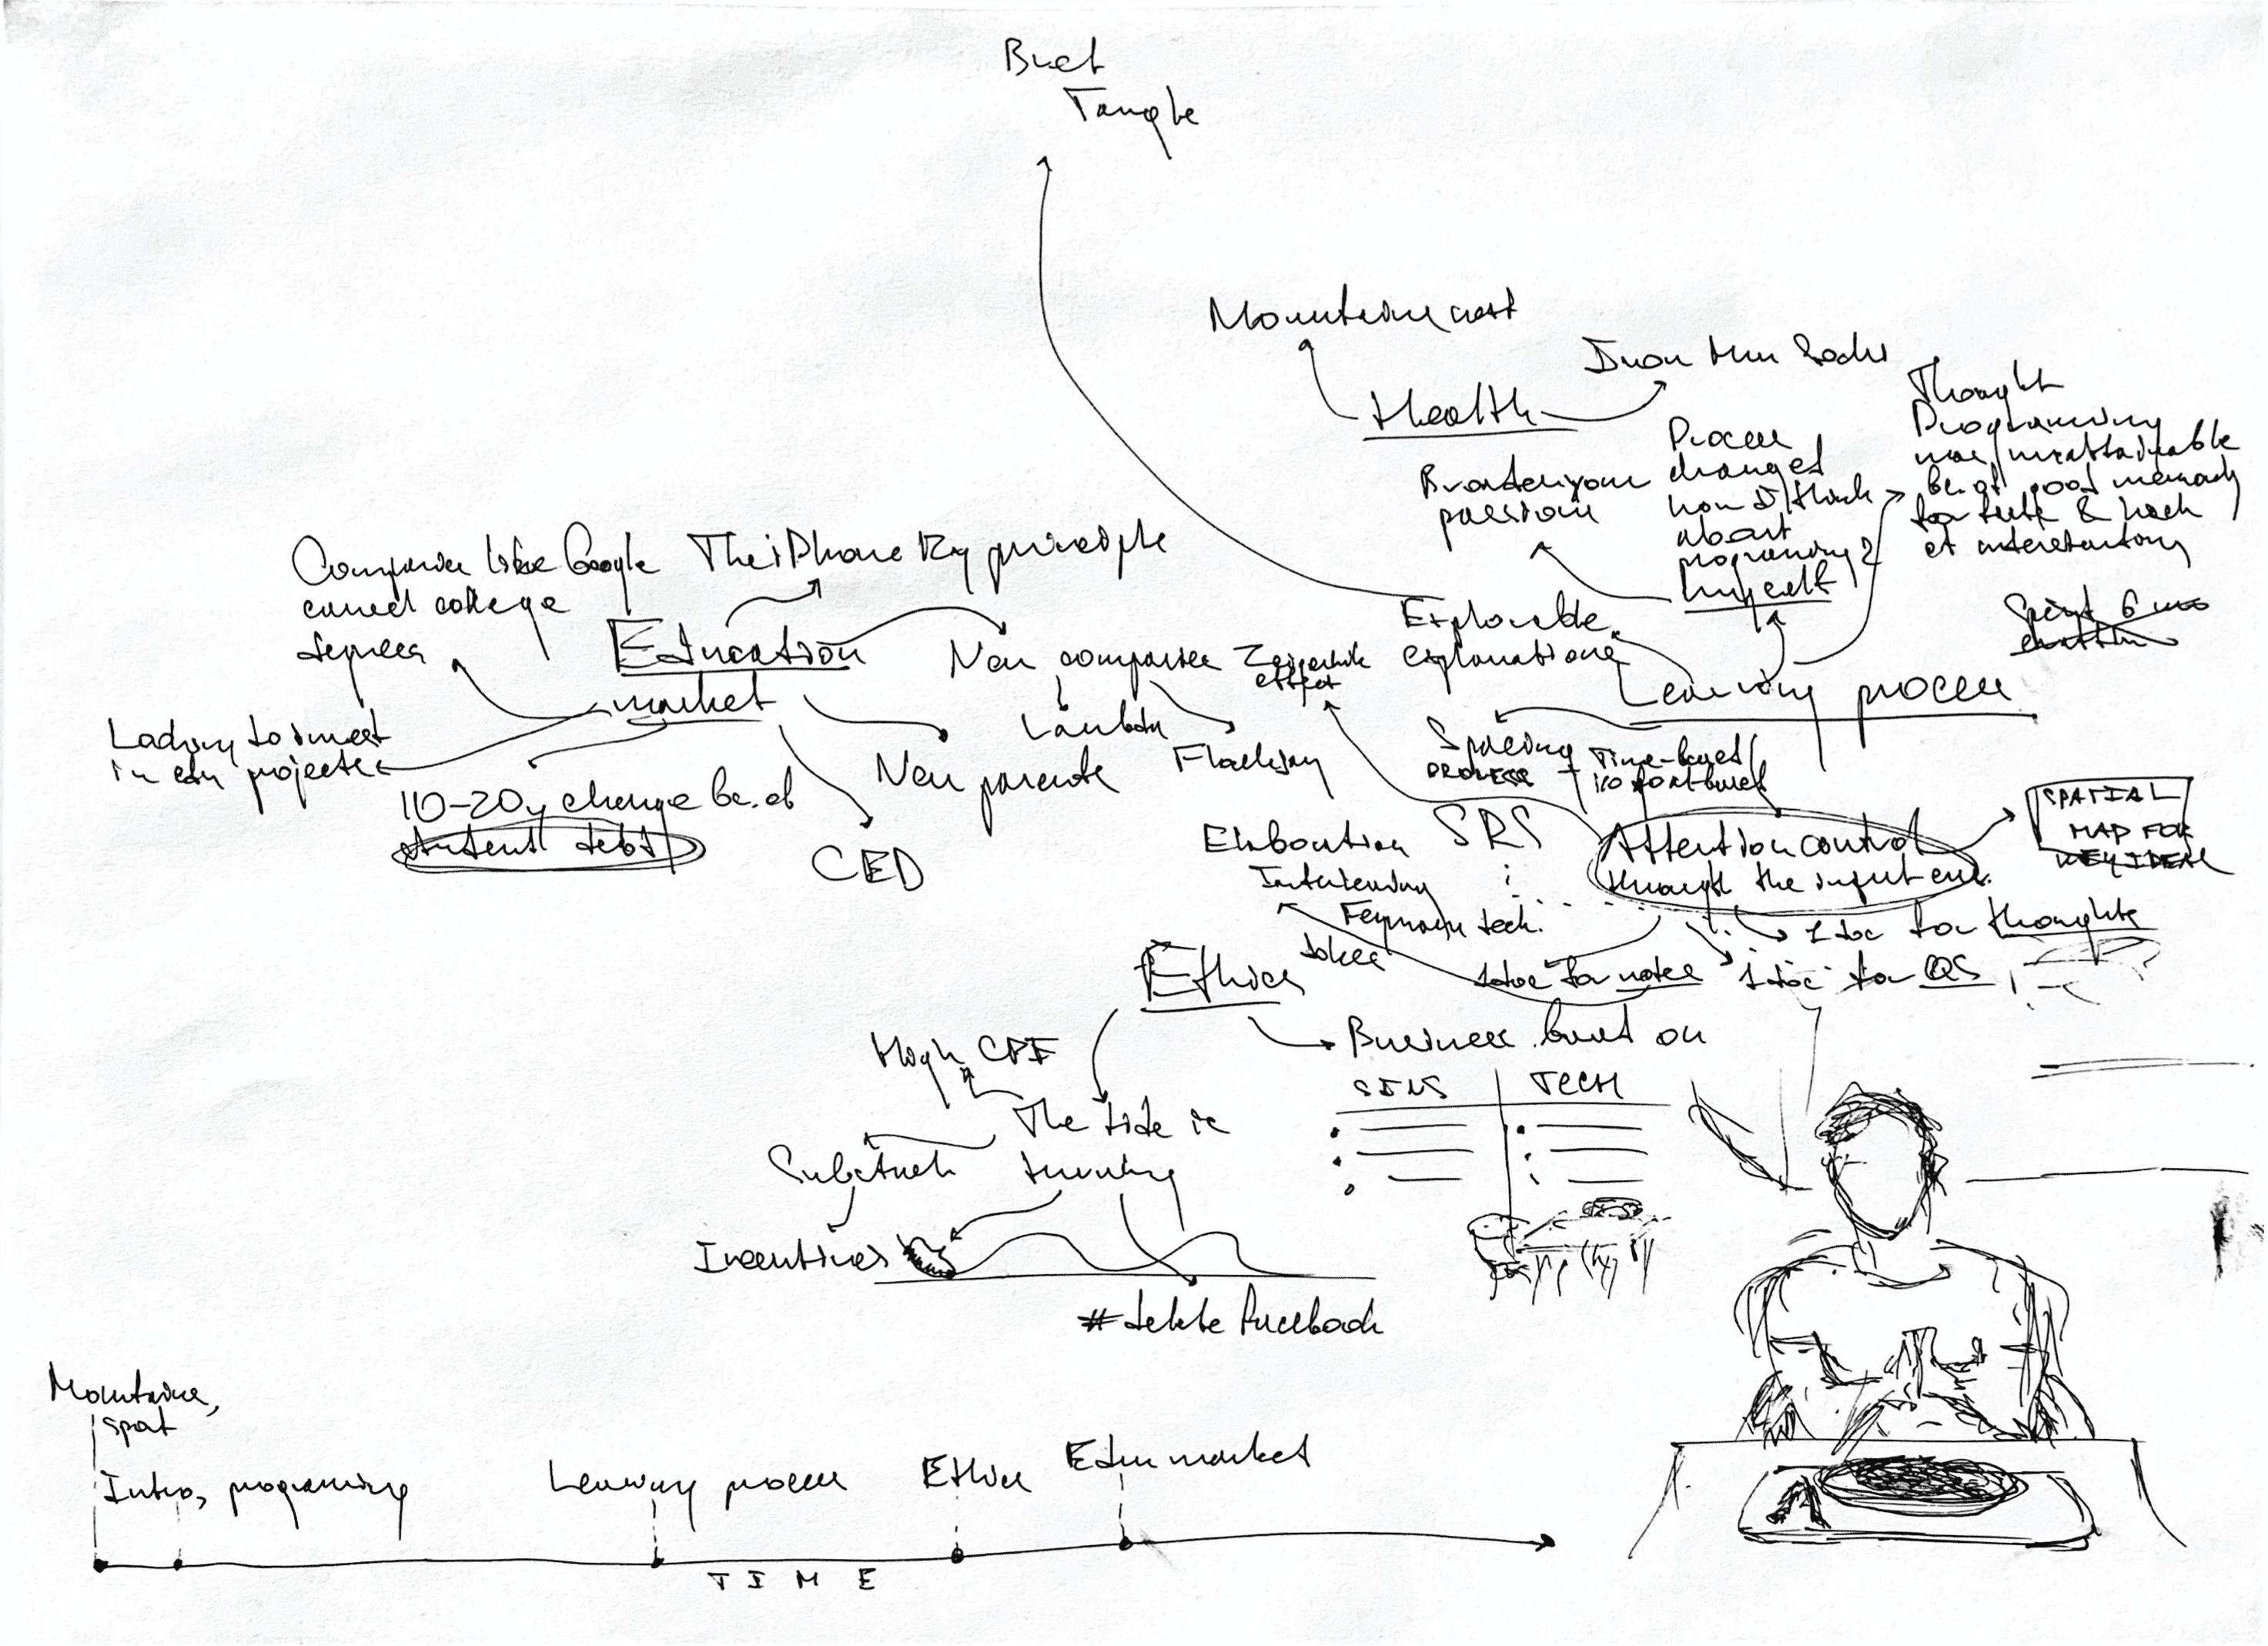 Bret
Tangle
Mountain crest
Health
Thought
Programming
was unattainable
bc. of good memory
for &
of understanding
Process
changed
how I think
about
programming &
myself
Broaden your
passions
Companies like Google
cancel college
degrees
The iPhone key principle
Education
market
New companies
Lambda
Flockjay
Zeigarnik
effect
Explorable
explanations
Learning process
Lacking to invest
in edu projects
10-20y change bc. of
student debt
New parents
CED
Spacing
process
Time-based/
Elaboration
Interleaving
Feynman tech.
Jokes
SRS
Attention control
through the input env.
SPATIAL
MAP FOR
KEY IDEAS
1 doc for thoughts
1 doc for notes
1 doc for QS
Ethics
Business built on
SINS
TECH
High CPI
The tide is
turning
Substack
Incentives
#delete facebook
Mountains,
sport
Intro, programming
Learning process
Ethics
Edu market
TIME